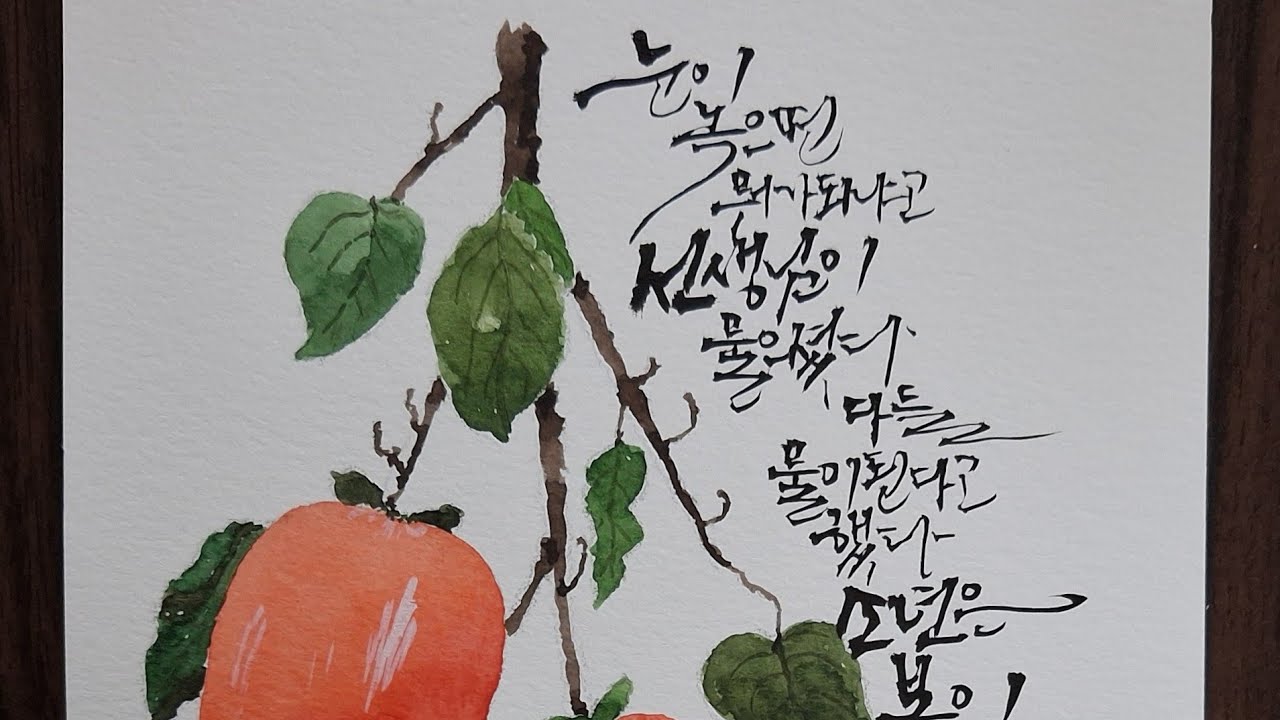 눈이
녹으면
뭐가되냐고
선생님이
물으셨다
다들
물이된다고
했다
소년은
봄이